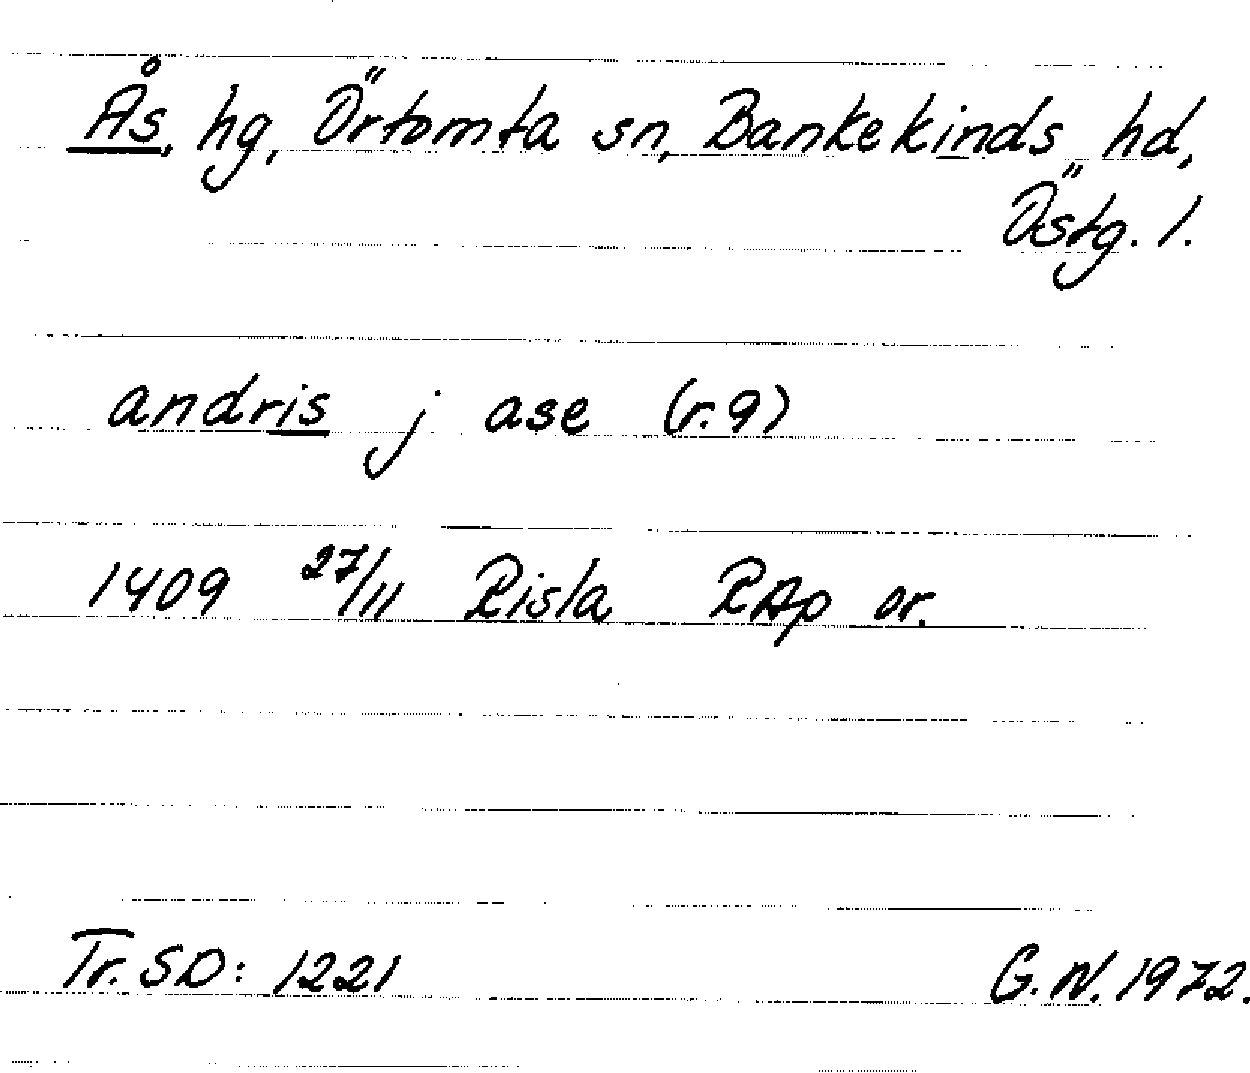 Ås, hg, Örtomta sn, Bankekinds hd,
Östg. l.
andris j ase (r. 9)
1409 27/11 Risla RAp or.
Tr. SD: 1221 G. N. 1972.